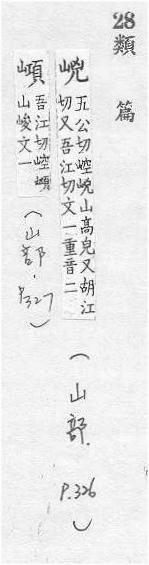 28類篇
㟅五公切崆㟅山高皃又胡江
切又吾江切文一重音二
（山部．P.326）
𡼼吾江切崆𡼼
山峻文一
（山部．P.327）